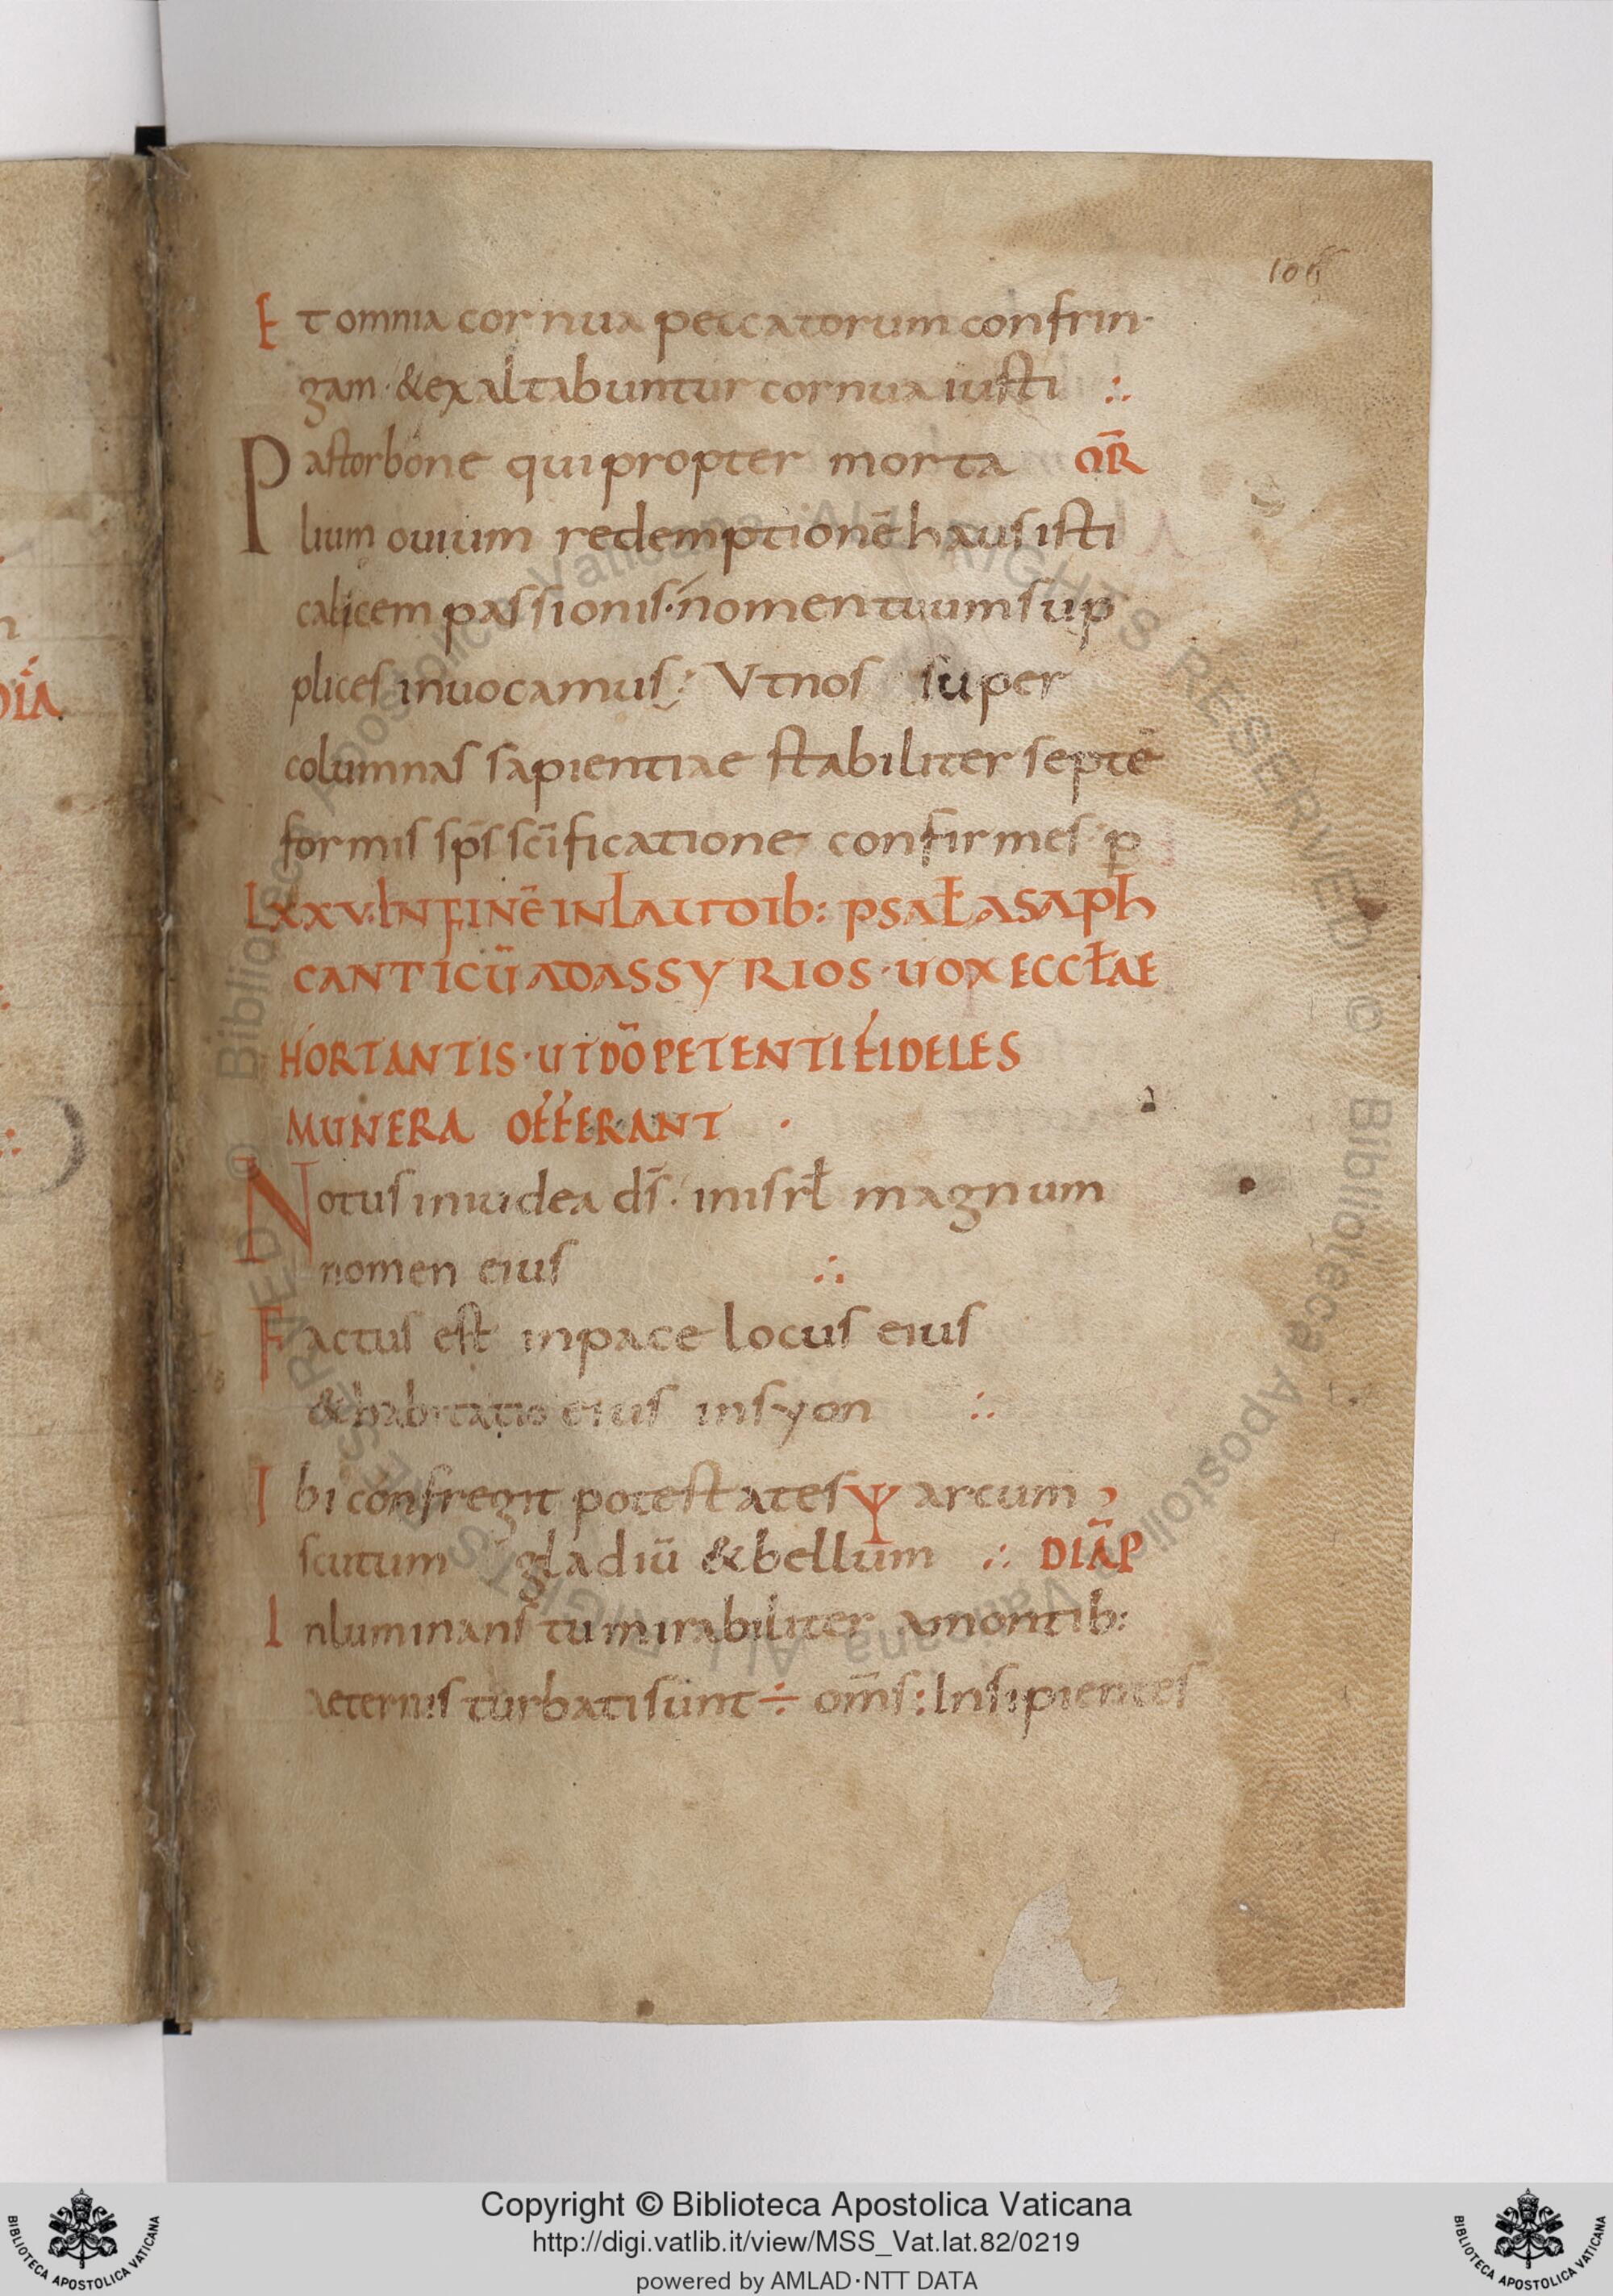 106
Et omnia cornua peccatorum confrin-
gam · & exaltabuntur cornua iusti ∴
Pastor bone qui propter morta OR̄
lium ouium redemptionē hausisti
calicem passionis · nomen tuum sup
plices inuocamus : Vt nos super
columnas sapientiae stabiliter septē
formis sp̄s sc̄ificatione confirmes · p̱
LXXV. IN FINĒ IN LAUDIB: PSAŁ ASAPH
CANTICŪ AD ASSYRIOS · UOX ECCŁAE
HORTANTIS · UT DŌ PETENTI FIDELES
MUNERA OFFERANT ·
Notus in iudea ds̄ · in isrł magnum
nomen eius ∴
Factus est in pace locus eius
& habitatio eius in syon ∴
Ibi confregit potestates Ψ arcum
scutum gladiū & bellum ∴ DIĀP
Inluminans tu mirabiliter a montib:
aeternis turbati sunt ÷ om̄s : Insipientes
DIA
Copyright © Biblioteca Apostolica Vaticana
http://digi.vatlib.it/view/MSS_Vat.lat.82/0219
powered by AMLAD·NTT DATA
BIBLIOTECA APOSTOLICA VATICANA
BIBLIOTECA APOSTOLICA VATICANA